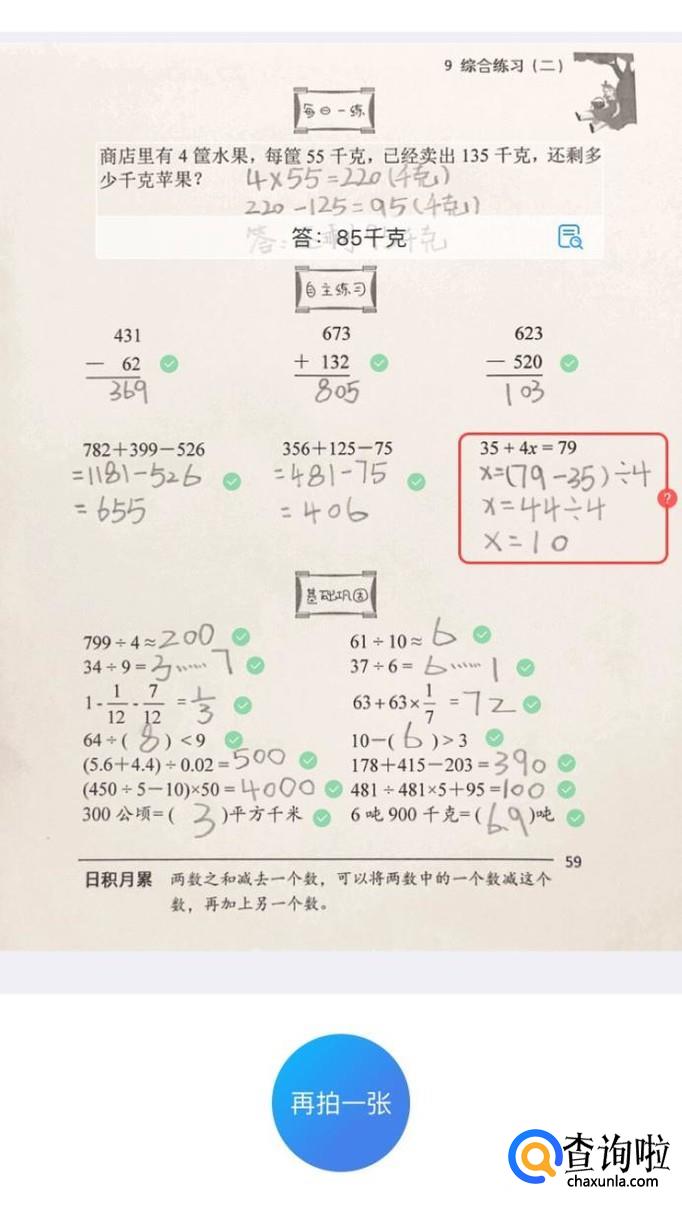 9 综合练习（二）
每日一练
商店里有 4 筐水果，每筐 55 千克，已经卖出 135 千克，还剩多
少千克苹果？ 4×55=220(千克)
220-125=95(千克)
答：85千克
自主练习
431 673 623
— 62 + 132 — 520
369 805 103
782+399−526 356+125−75 35 + 4x = 79
=1181-526 =481-75 x=(79-35)÷4
=655 =406 x=44÷4
x=10
基础巩固
799 ÷ 4 ≈ 200 61 ÷ 10 ≈ 6
34 ÷ 9 = 3……7 37 ÷ 6 = 6……1
1 - 1/12 - 7/12 = 1/3 63 + 63 × 1/7 = 72
64 ÷ ( 8 ) < 9 10−( 6 ) > 3
(5.6+4.4) ÷ 0.02 = 500 178+415−203 = 390
(450 ÷ 5−10)×50 = 4000 481 ÷ 481×5+95 =100
300 公顷= ( 3 )平方千米 6 吨 900 千克= ( 6.9 )吨
59
日积月累 两数之和减去一个数，可以将两数中的一个数减这个
数，再加上另一个数。
再拍一张
查询啦
chaxunla.com